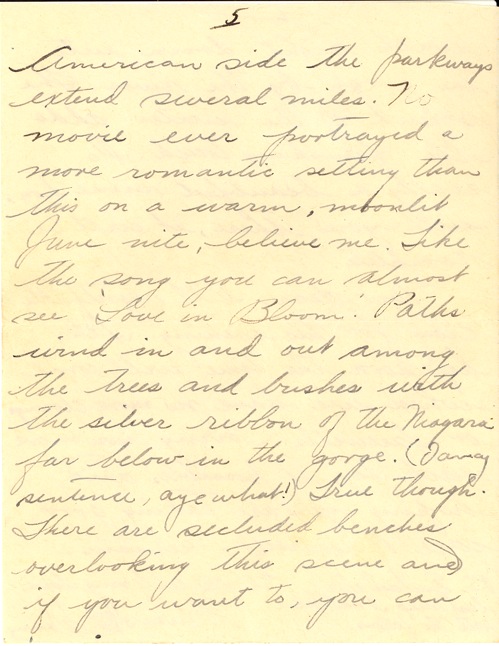 5
American side the parkways
extend several miles. No
movie ever portrayed a
more romantic setting than
this on a warm, moonlit
June nite, believe me. Like
the song you can almost
see 'Love in Bloom'. Paths
wind in and out among
the trees and bushes with
the silver ribbon of the Niagara
far below in the gorge. (Fancy
sentence, aye what!) True though.
There are secluded benches
overlooking this scene and
if you want to, you can